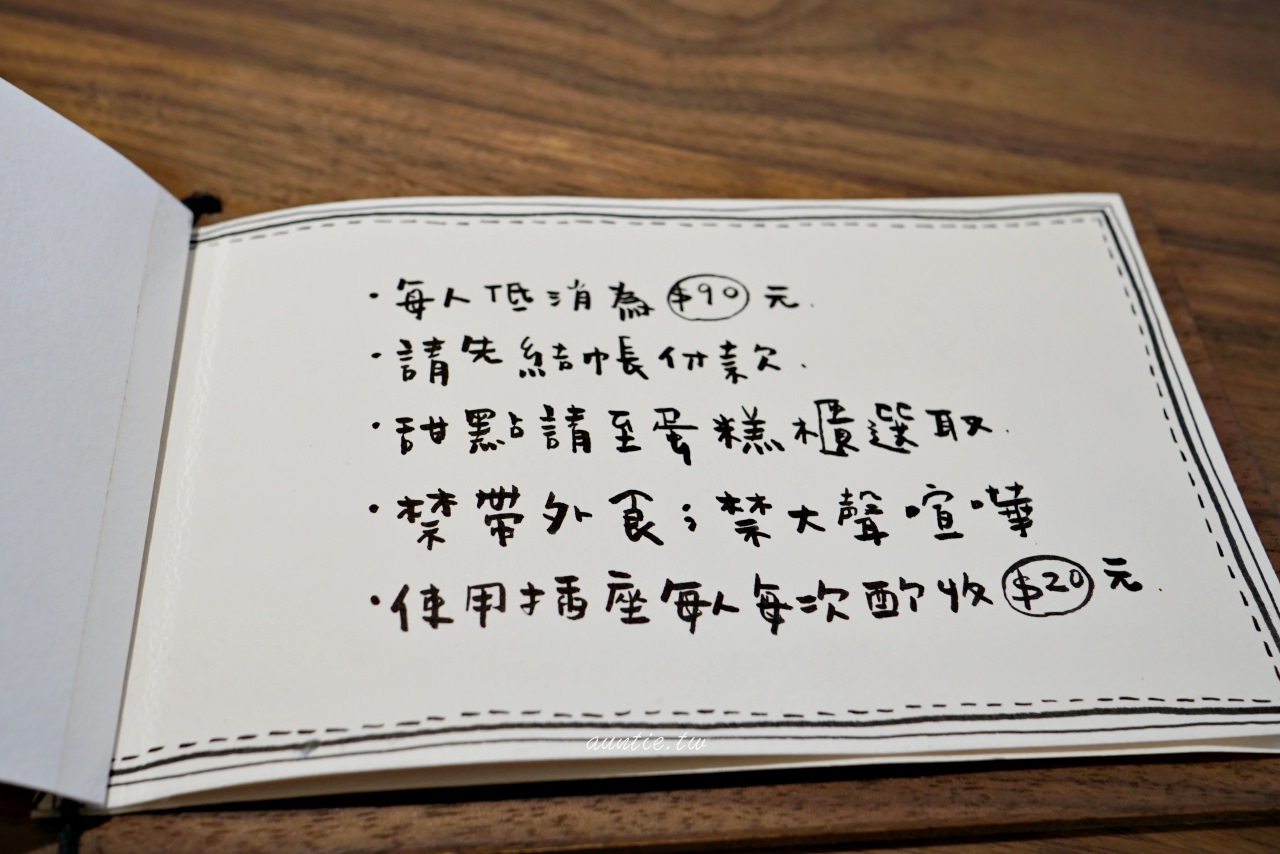 ・每人低消為$90元.
・請先結帳付款.
・甜點請至蛋糕櫃選取.
・禁帶外食；禁大聲喧嘩
・使用插座每人每次酌收$20元.
auntie.tw